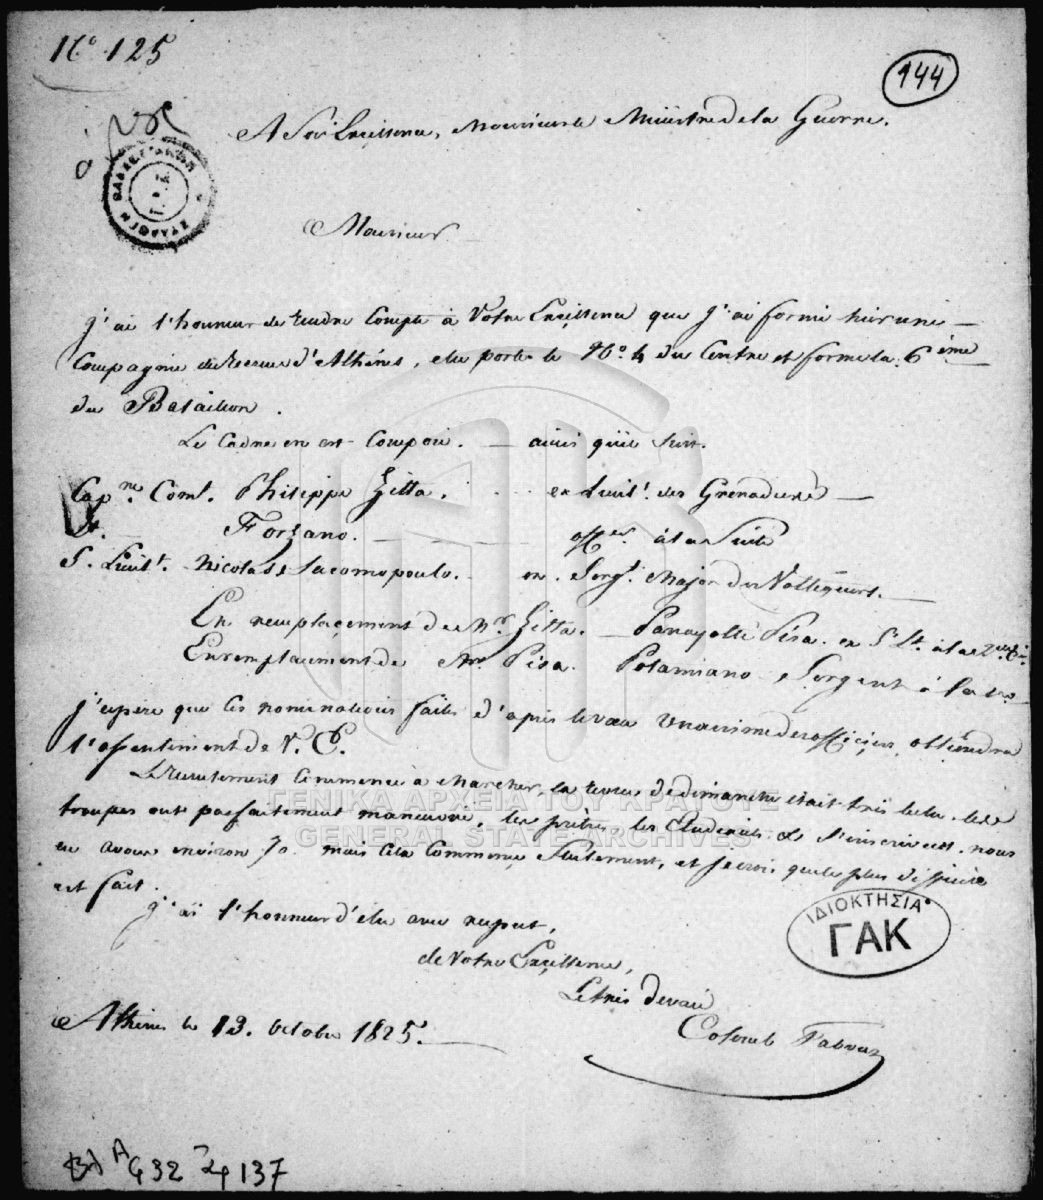 N° 125
144
A Son Excellence, Monsieur le Ministre de la Guerre.
Monsieur
j'ai l'honneur de rendre Compte à Votre Excellence que j'ai formé hier une
Compagnie de recrues d'Athènes, elle porte le N° 4 du Centre et forme la 6ème
du Bataillon.
Le Cadre en est Composé. ainsi qu'il suit.
Capne Comt. Philippe Zitta. ex Lieutt. des Grenadiers
Lt. Forzano. offer. à la Suite
S. Lieutt. Nicolas Iacomopoulo. ex Sergt. Major des Voltigeurs.
En remplacement de Mr. Zitta. Panayotti Pisa. ex S. Lt. à la 2me
En remplacement de Mr. Pisa. Potamiano Sergent à la
j'espère que les nominations faites d'après le vœu unanime des officiers, obtiendra
l'assentiment de V. E.
Le recrutement Commence à marcher, la revue de dimanche était très belle. les
troupes ont parfaitement manœuvré, les prêtres, les Etudiants s'inscrivent. nous
en avons environ 70 mais cela Commence seulement, et je crois que le plus difficile
est fait.
j'ai l'honneur d'être avec respect,
de Votre Excellence,
Le très dévoué
Colonel Fabvier
Athènes le 13. octobre 1825.
ΙΔΙΟΚΤΗΣΙΑ
ΓΑΚ
ΓΕΝΙΚΑ ΑΡΧΕΙΑ ΤΟΥ ΚΡΑΤΟΥΣ
GENERAL STATE ARCHIVES
432 24 137